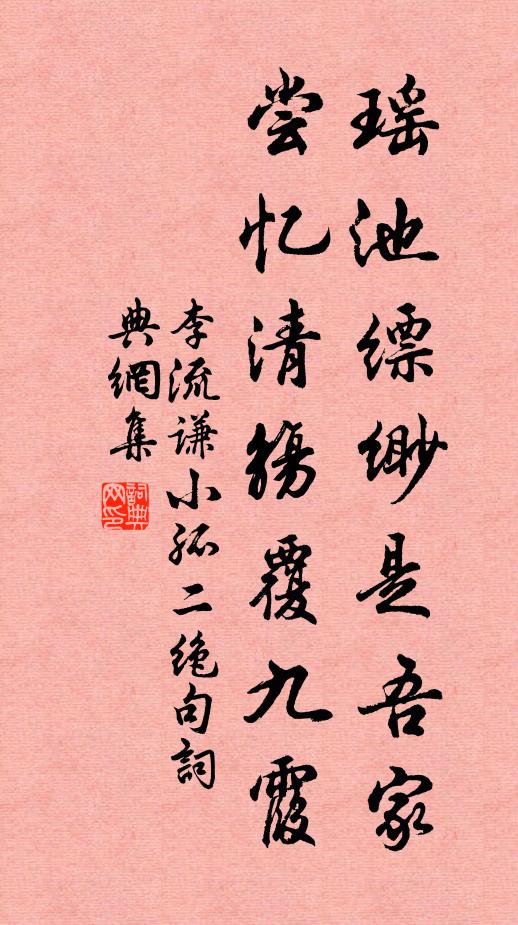 瑶池缥缈是吾家
尝忆清觞覆九霞
李流谦小孤二绝句詞
典網集
詞典网印